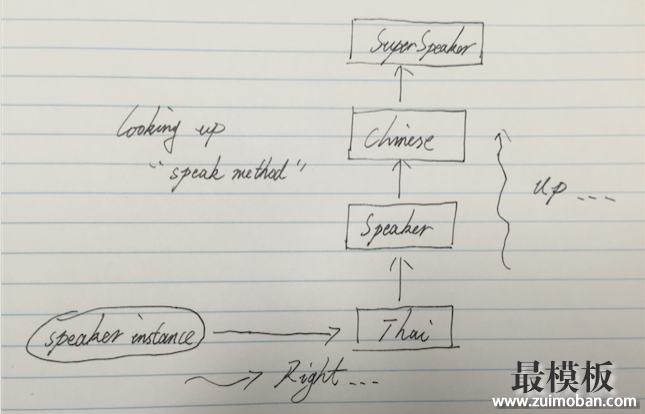 SuperSpeaker
Looking up
"speak method"
Chinese
Up ...
Speaker
speaker instance
Thai
Right ...
最模板
www.zuimoban.com